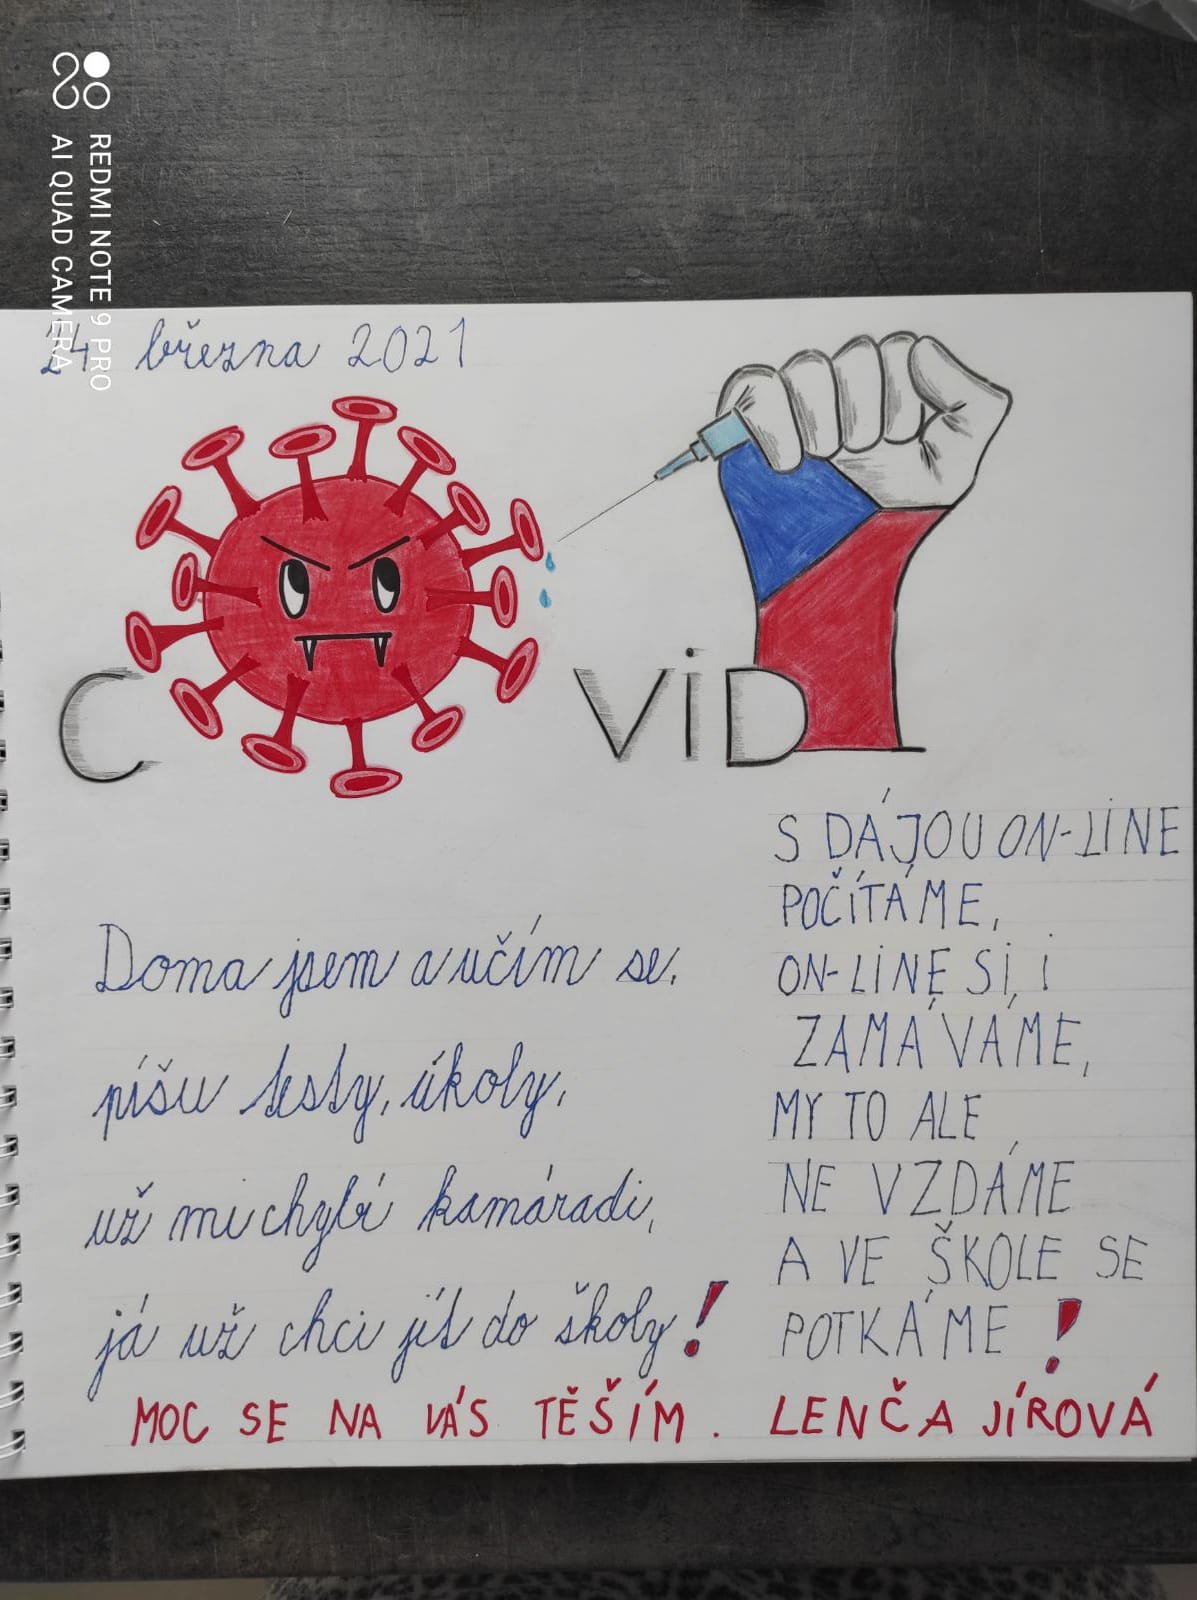 REDMI NOTE 9 PRO
AI QUAD CAMERA
24 března 2021
C VID
Doma jsem a učím se,
píšu testy, úkoly,
už mi chybí kamáradi,
já už chci jít do školy!
S DÁJOU ON-LINE
POČÍTÁME,
ON-LINE SI, I
ZAMÁVÁME,
MY TO ALE
NE VZDÁME
A VE ŠKOLE SE
POTKÁME!
MOC SE NA VÁS TĚŠÍM. LENČA JÍROVÁ